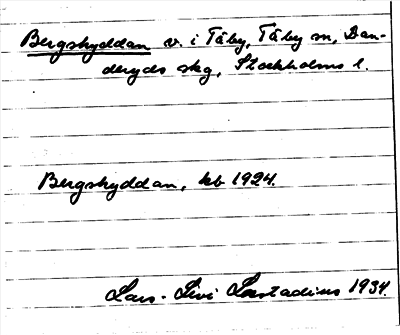 Bergshyddan v. i Täby, Täby sn, Dan-
deryds skg, Stockholms l.
Bergshyddan, kb 1924.
Lars-Levi Læstadius 1934.